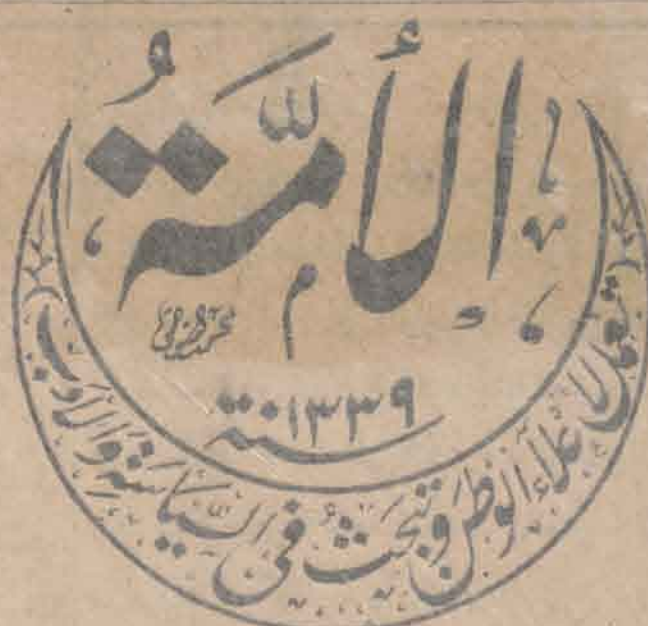 الأُمَّةُ
سنة ١٣٣٩
لإعلاء الوطن وتبحث في السياسة والأدب